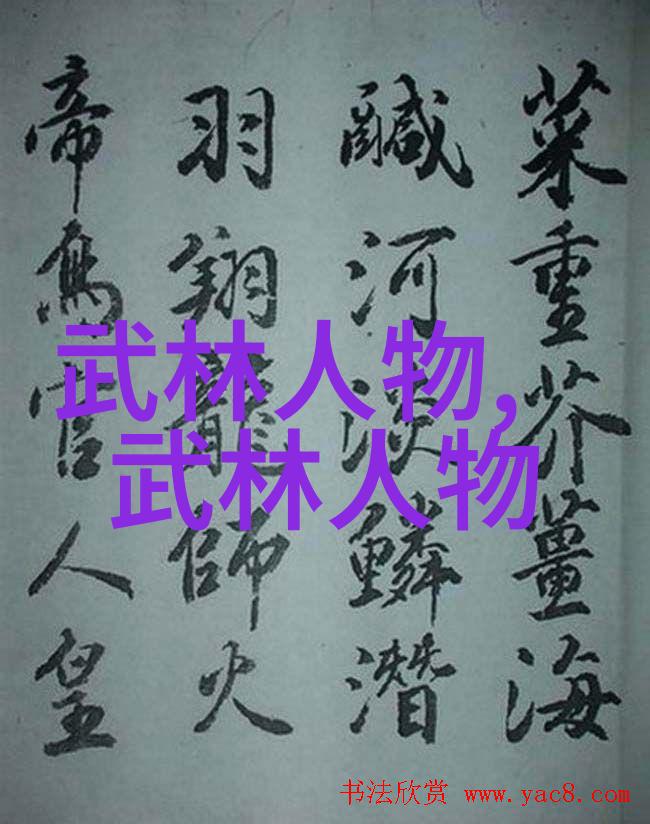 菜重芥薑海
鹹河淡鱗潛
羽翔龍師火
帝鳥官人皇
武林人物,
武林人物
书法欣赏 www.yac8.com